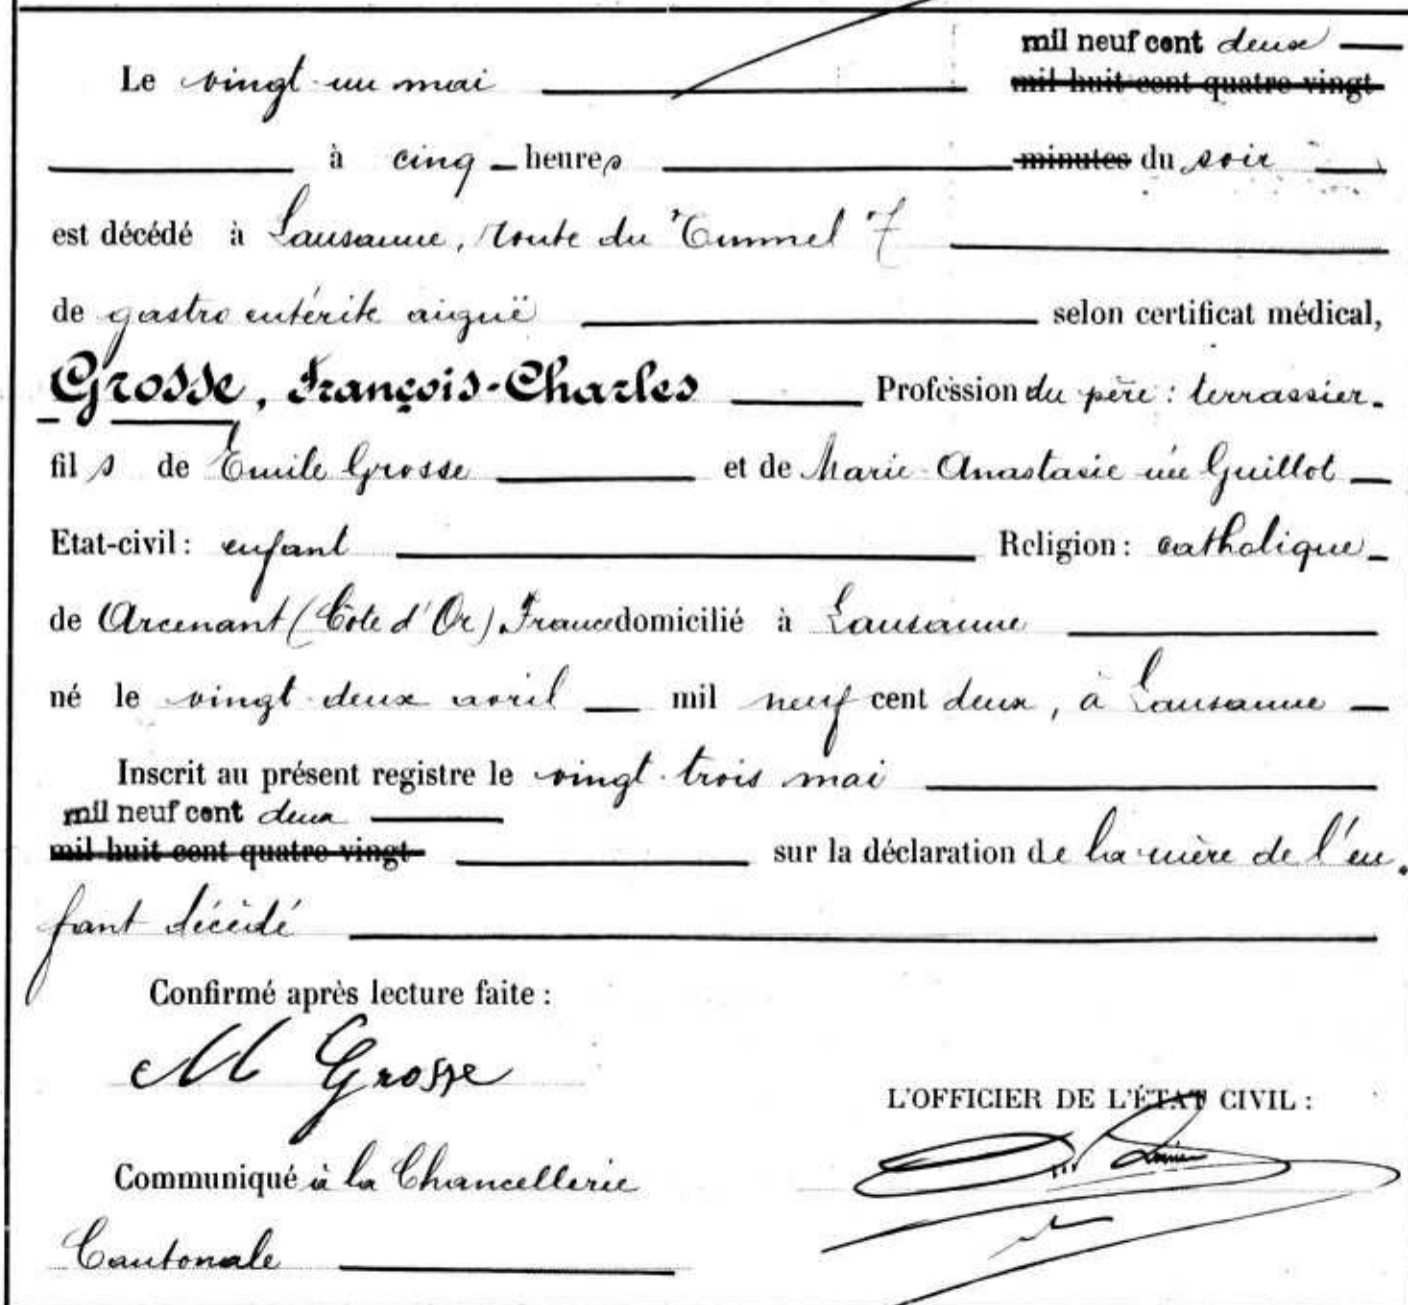 mil neuf cent deux
Le vingt-un mai mil huit cent quatre-vingt
à cinq heures minutes du soir
est décédé à Lausanne, route du Tunnel 7
de gastro entérite aiguë selon certificat médical,
Grosse, François-Charles Profession du père : terrassier.
fils de Emile Grosse et de Marie-Anastasie née Guillot
Etat-civil : enfant Religion : catholique
de Arcenant (Côte d'Or) France domicilié à Lausanne
né le vingt-deux avril mil neuf cent deux, à Lausanne
Inscrit au présent registre le vingt-trois mai
mil neuf cent deux
mil huit cent quatre-vingt sur la déclaration de la mère de l'en-
fant décédé
Confirmé après lecture faite :
M Grosse
L'OFFICIER DE L'ÉTAT CIVIL :
Communiqué à la Chancellerie
Cantonale